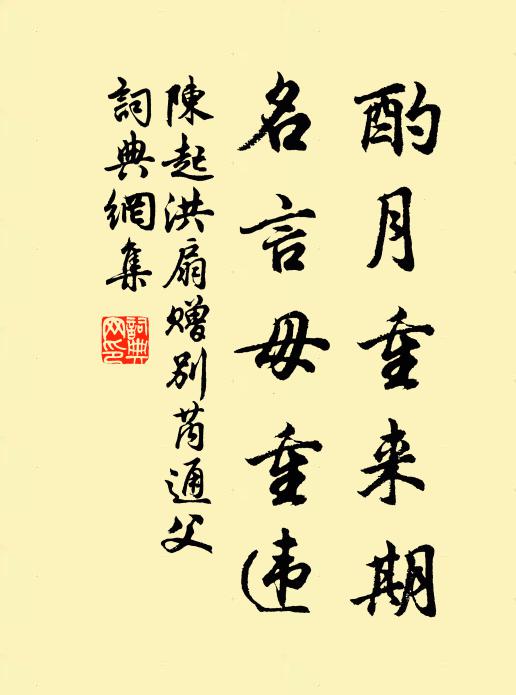 酌月重来期
名言毋重违
陳起洪扇贈别芮通父
詞典網集
詞典网印